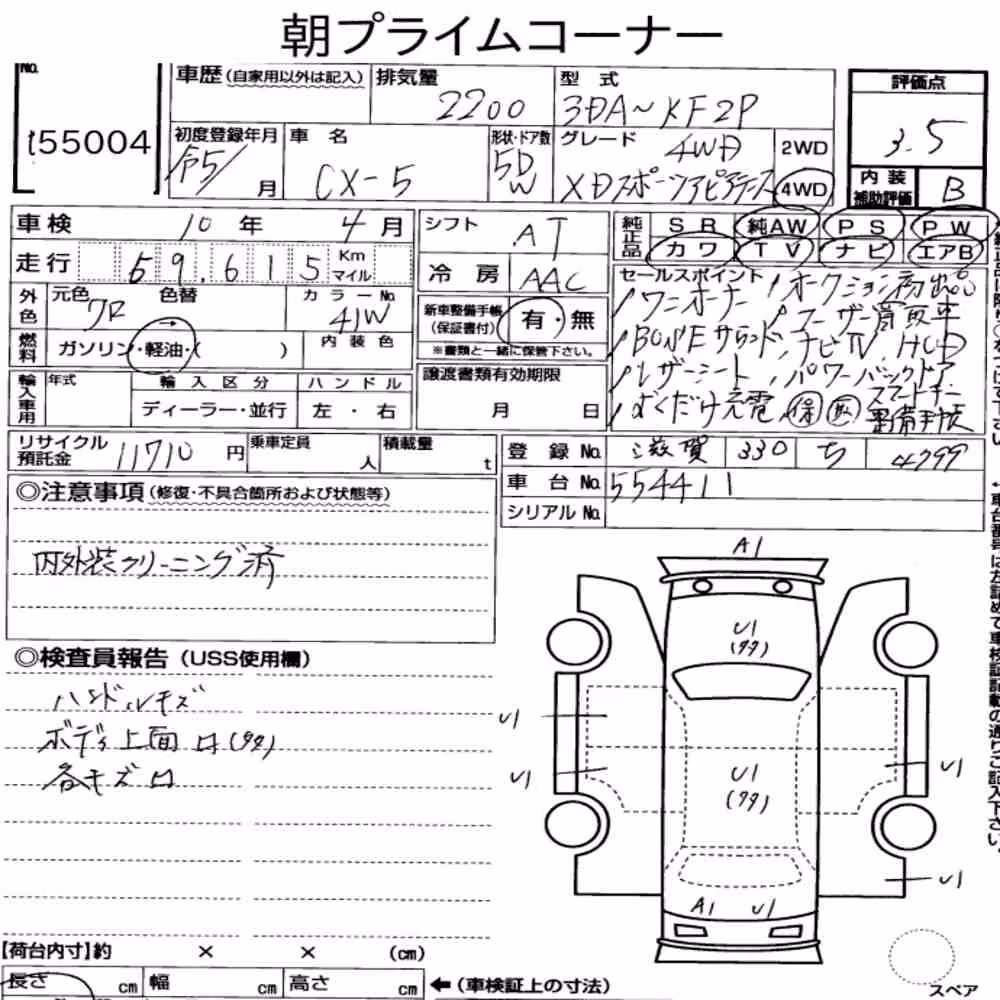 朝プライムコーナー
No.
t55004
車歴(自家用以外は記入)
排気量
2200
型 式
3DA~KF2P
評価点
3.5
初度登録年月
令5/ 月
車 名
CX-5
形状・ドア数
5D
W
グレード
4WD
XDスポーツアピアランス
2WD
4WD
内 装
補助評価
B
車検 10 年 4 月
シフト
AT
純正品
SR 純AW PS PW
カワ TV ナビ エアB
走行 69.615 Km
マイル
冷 房 AAC
外色
元色 色替
→
カラーNo
41W
燃料
ガソリン・軽油・( )
内 装 色
新車整備手帳
(保証書付)
有・無
※書類と一緒に保管下さい。
セールスポイント
ワンオーナー オークション初出品
BOSEサウンド、ナビTV、HUD
レザーシート、パワーバックドア
スマートキー
輸入車用
年式
輸 入 区 分
ディーラー・並行
ハ ン ド ル
左 ・ 右
譲渡書類有効期限
月 日
リサイクル
預託金
11710 円
乗車定員
人
積載量
t
登 録 No. 滋賀 330 ち 4799
車 台 No. 554411
シリアル No.
◎注意事項(修復・不具合箇所および状態等)
内外装クリーニング済
◎検査員報告(USS使用欄)
ハンドルキズ
ボディ上面
各キズ
A1
U1
U1
U1
U1
U1
U1
A1 U1
【荷台内寸】約 × × (cm)
長さ cm 幅 cm 高さ cm
←(車検証上の寸法)
スペア
←車台番号は左詰めで車検証記載の通りご記入下さい。